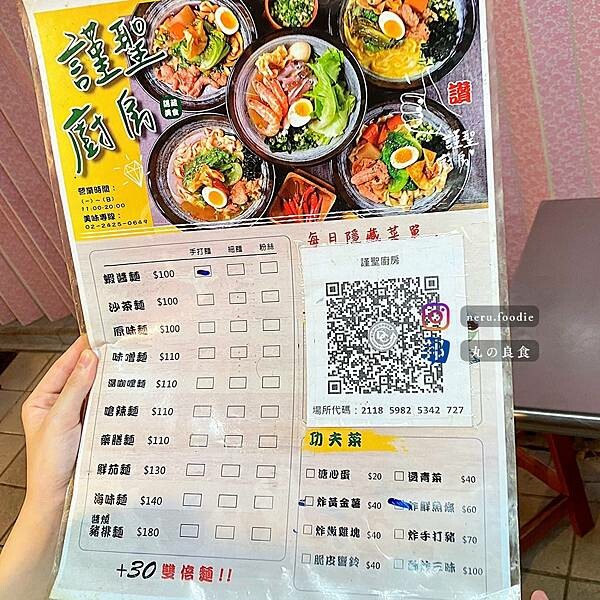 謹聖
廚房
謹聖
廚房
讚
營業時間：
(一)～(日)
11:00-20:00
美味專線：
02-2425-0649
每日隱藏菜單
手打麵 細麵 粉絲
蝦醬麵 $100
沙茶麵 $100
原味麵 $100
味噌麵 $110
湯咖哩麵 $110
嗆辣麵 $110
藥膳麵 $110
鮮茄麵 $130
海味麵 $140
醬燒
豬排麵 $180
+30 雙倍麵!!
謹聖廚房
場所代碼：2118 5982 5342 727
neru.foodie
丸の良食
功夫菜
溏心蛋 $20 燙青菜 $40
炸黃金薯 $40 炸鮮魚條 $60
炸嫩雞塊 $40 炸手打豬 $70
脆皮響鈴 $40 三味 $100